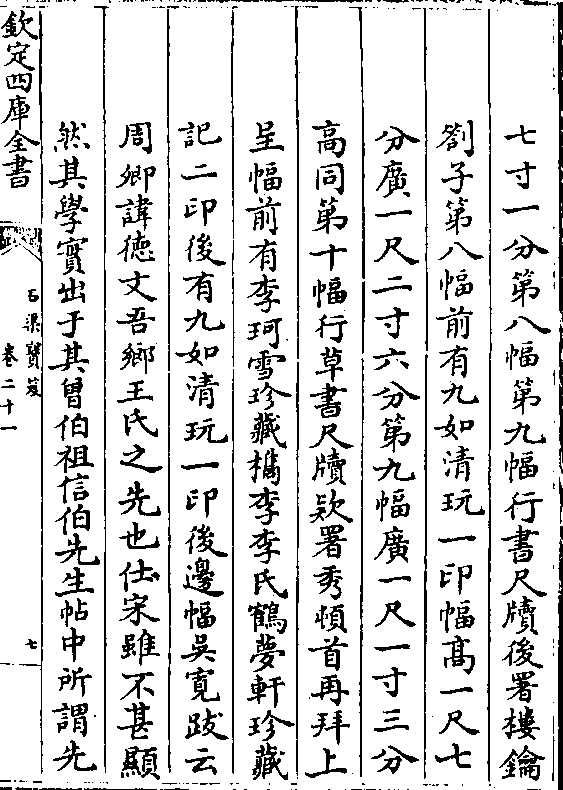 七寸一分第八幅第九幅行書尺牘後署樓鑰
劄子第八幅前有九如清玩一印幅髙一尺七
分廣一尺二寸六分第九幅廣一尺一寸三分
高同第十幅行草書尺牘欵署秀頓首再拜上
呈幅前有李珂雪珍藏檇李李氏鶴夢軒珍藏
記二印後有九如清玩一印後邊幅吳寛跋云
周卿諱徳文吾鄉王氏之先也仕宋雖不甚顯
然其學實出于其曾伯祖信伯先生帖中所謂先
欽定四庫全書
石渠寶笈
卷二十一
七